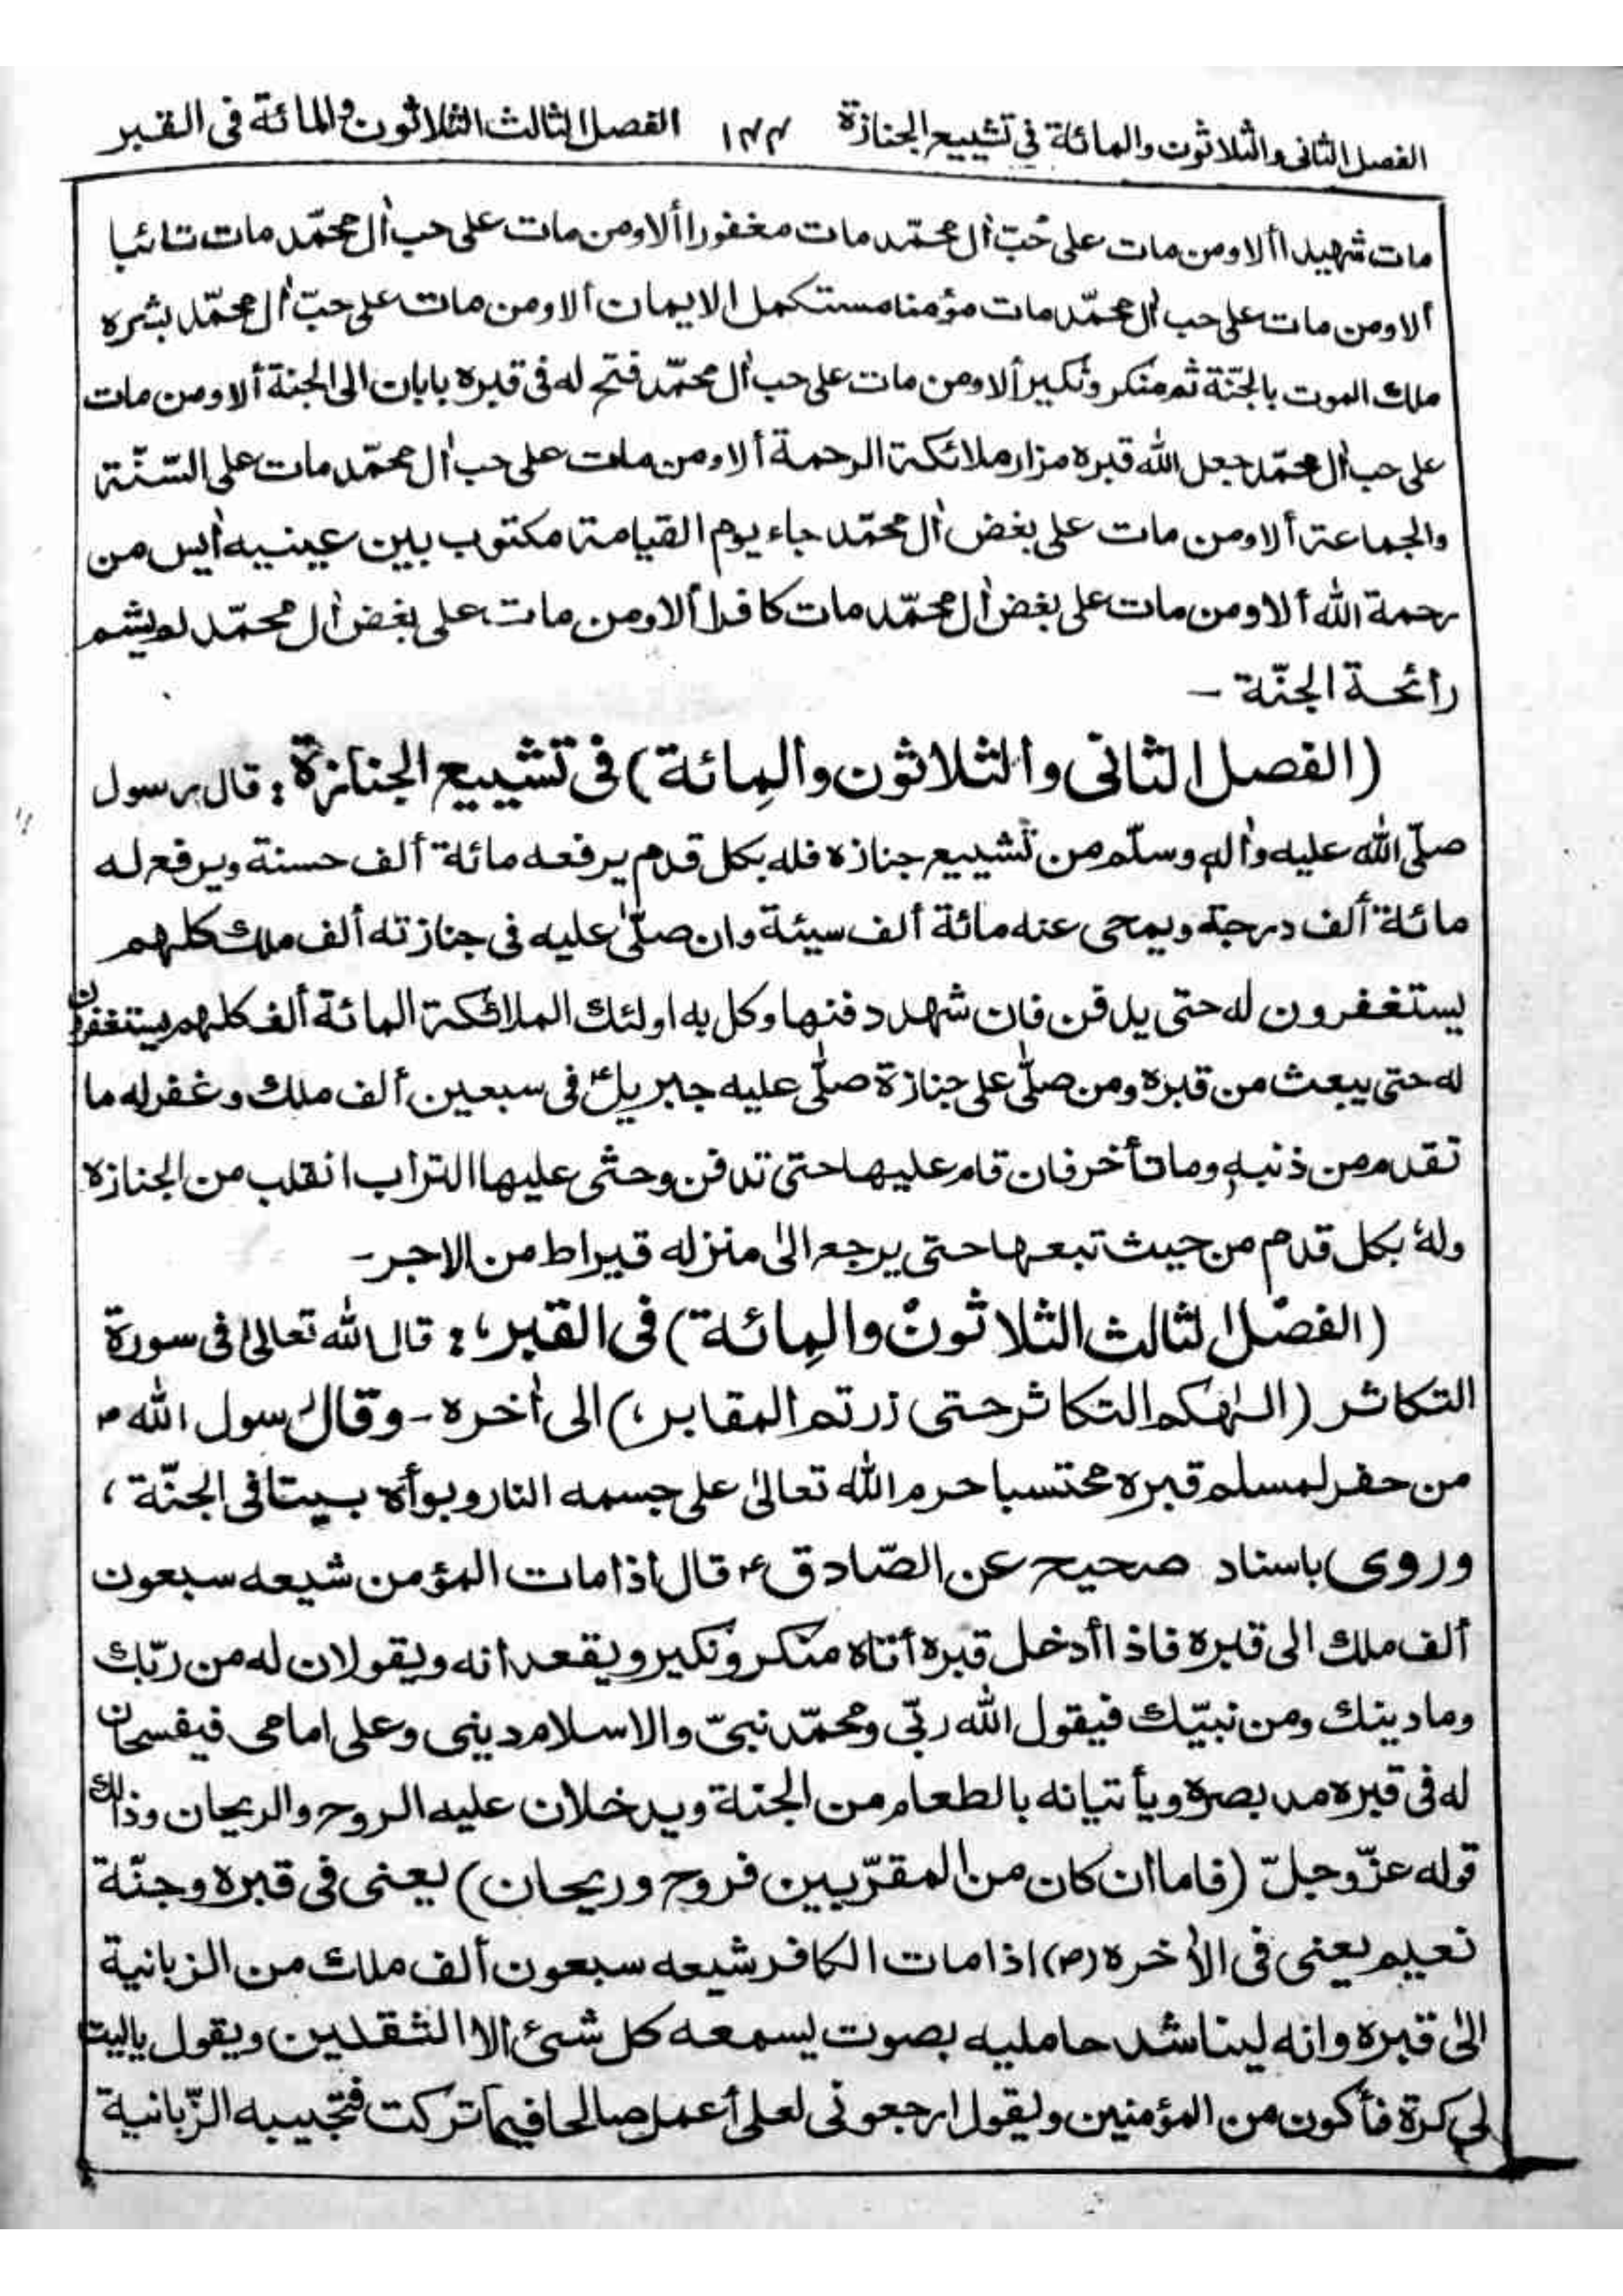 الفصل الثانى والثلاثون والمائة فى تشييع الجنازة ١٤٤ الفصل الثالث الثلاثون والمائة فى القبر
مات شهيدا ألا ومن مات على حُبّ اٰل محمّد مات مغفورا ألا ومن مات على حب اٰل محمّد مات تائبا
ألا ومن مات على حب اٰل محمّد مات مؤمنا مستكمل الايمان ألا ومن مات على حبّ اٰل محمّد بشره
ملك الموت بالجنّة ثم منكر ونكير ألا ومن مات على حب اٰل محمّد فتح له فى قبره بابان الى الجنة ألا ومن مات
على حب اٰل محمّد جعل الله قبره مزار ملائكة الرحمة ألا ومن مات على حب اٰل محمّد مات على السّنّة
والجماعة ألا ومن مات على بغض اٰل محمّد جاء يوم القيامة مكتوب بين عينيه اٰيس من
رحمة الله ألا ومن مات على بغض اٰل محمّد مات كافرا ألا ومن مات على بغض اٰل محمّد لم يشم
رائحة الجنّة -
(الفصل الثانى والثلاثون والمِائة) فى تشييع الجنازة: قال رسول
صلّى الله عليه واٰله وسلّم من تشييع جنازه فله بكل قدم يرفعه مائة ألف حسنة ويرفع له
مائة ألف درجة ويمحى عنه مائة ألف سيئة وان صلّى عليه فى جنازته ألف ملك كلهم
يستغفرون له حتى يدفن فان شهد دفنها وكل به اولئك الملائكة المائة ألف كلهم يستغفرون
له حتى يبعث من قبره ومن صلّى على جنازة صلّى عليه جبريلؑ فى سبعين ألف ملك وغفر له ما
تقدم من ذنبه وما تأخر فان قام عليها حتى تدفن وحثى عليها التراب انقلب من الجنازه
ولهٗ بكل قدم من حيث تبعها حتى يرجع الىٰ منزله قيراط من الاجر-
(الفصل الثالث الثلاثون والمِائة) فى القبر،: قال الله تعالىٰ فى سورة
التكاثر (الهٰكم التكاثر حتى زرتم المقابر،) الى اٰخره - وقال رسول الله ص
من حفر لمسلم قبره محتسبا حرم الله تعالىٰ على جسمه النار وبوأه بيتا فى الجنّة،
وروى باسناد صحيح عن الصّادقؑ قال اذا مات المؤمن شيعه سبعون
ألف ملك الى قبره فاذا أدخل قبره أتاه منكر ونكير ويقعدانه ويقولان له من ربّك
وما دينك ومن نبيّك فيقول الله ربّى ومحمّد نبىّ والاسلام دينى وعلى امامى فيفسحان
له فى قبره مد بصره ويأتيانه بالطعام من الجنة ويدخلان عليه الروح والريحان وذالك
قوله عزّوجلّ (فاما ان كان من المقرّبين فروح وريحان) يعنى فى قبره وجنّة
نعيم يعنى فى الاٰخره (ص) اذا مات الكافر شيعه سبعون ألف ملك من الزبانية
الىٰ قبره وانه ليناشد حامليه بصوت يسمعه كل شئ الا الثقلين ويقول ياليت
لى كرة فأكون من المؤمنين ويقول ارجعونى لعلى أعمل صالحا فيما تركت فتجيبه الزّبانية